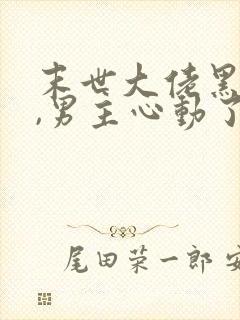 末世大佬黑
,男主心动了
尾田荣一郎 安